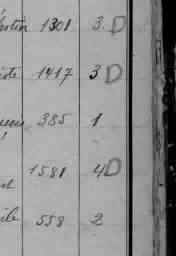 1301 3 D
1417 3 D
385 1
1581 4 D
558 2